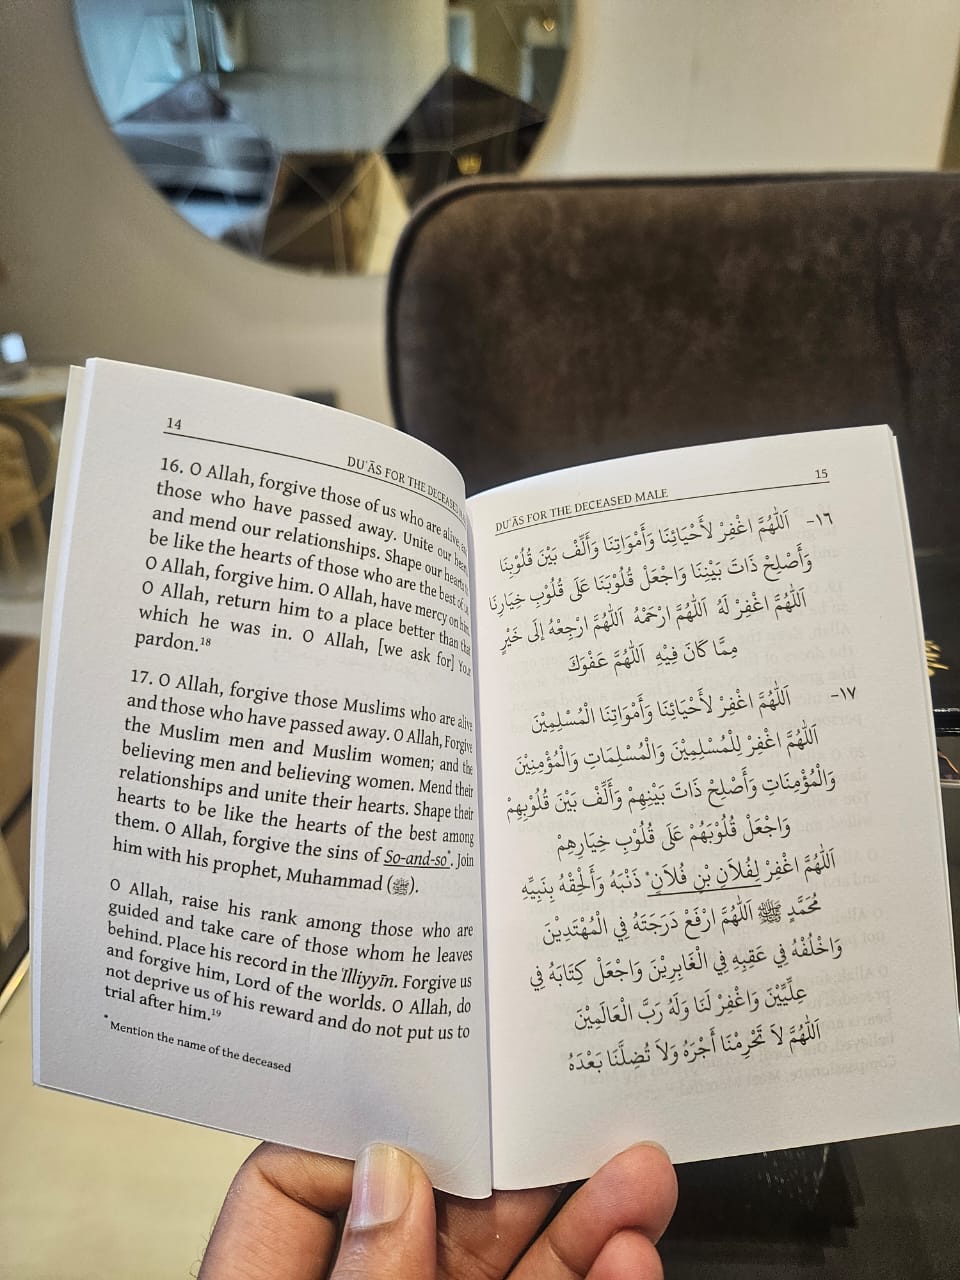 14
DUʿĀS FOR THE DECEASED
16. O Allah, forgive those of us who are alive
those who have passed away. Unite our
and mend our relationships. Shape our hearts
be like the hearts of those who are the best of
O Allah, forgive him. O Allah, have mercy on him.
O Allah, return him to a place better than that
which he was in. O Allah, [we ask for] Your
pardon.¹⁸
17. O Allah, forgive those Muslims who are alive
and those who have passed away. O Allah, Forgive
the Muslim men and Muslim women; and the
believing men and believing women. Mend their
relationships and unite their hearts. Shape their
hearts to be like the hearts of the best among
them. O Allah, forgive the sins of So-and-so*. Join
him with his prophet, Muhammad (ﷺ).
O Allah, raise his rank among those who are
guided and take care of those whom he leaves
behind. Place his record in the ʿIlliyyīn. Forgive us
and forgive him, Lord of the worlds. O Allah, do
not deprive us of his reward and do not put us to
trial after him.¹⁹
* Mention the name of the deceased
15
DUʿĀS FOR THE DECEASED MALE
١٦- اَللّٰهُمَّ اغْفِرْ لأَحْيَائِنَا وَأَمْوَاتِنَا وَأَلِّفْ بَيْنَ قُلُوْبِنَا
وَأَصْلِحْ ذَاتَ بَيْنِنَا وَاجْعَلْ قُلُوْبَنَا عَلَى قُلُوْبِ خِيَارِنَا
اَللّٰهُمَّ اغْفِرْ لَهُ اَللّٰهُمَّ ارْحَمْهُ اَللّٰهُمَّ ارْجِعْهُ إِلَى خَيْرٍ
مِمَّا كَانَ فِيْهِ اَللّٰهُمَّ عَفْوَكَ
١٧- اَللّٰهُمَّ اغْفِرْ لأَحْيَائِنَا وَأَمْوَاتِنَا الْمُسْلِمِيْنَ
اَللّٰهُمَّ اغْفِرْ لِلْمُسْلِمِيْنَ وَالْمُسْلِمَاتِ وَالْمُؤْمِنِيْنَ
وَالْمُؤْمِنَاتِ وَأَصْلِحْ ذَاتَ بَيْنِهِمْ وَأَلِّفْ بَيْنَ قُلُوْبِهِمْ
وَاجْعَلْ قُلُوْبَهُمْ عَلَى قُلُوْبِ خِيَارِهِمْ
اَللّٰهُمَّ اغْفِرْ لِفُلاَنِ بْنِ فُلاَنٍ* ذَنْبَهُ وَأَلْحِقْهُ بِنَبِيِّهِ
مُحَمَّدٍ ﷺ اَللّٰهُمَّ ارْفَعْ دَرَجَتَهُ فِي الْمُهْتَدِيْنَ
وَاخْلُفْهُ فِي عَقِبِهِ فِي الْغَابِرِيْنَ وَاجْعَلْ كِتَابَهُ فِي
عِلِّيِّيْنَ وَاغْفِرْ لَنَا وَلَهُ رَبَّ الْعَالَمِيْنَ
اَللّٰهُمَّ لاَ تَحْرِمْنَا أَجْرَهُ وَلاَ تُضِلَّنَا بَعْدَهُ